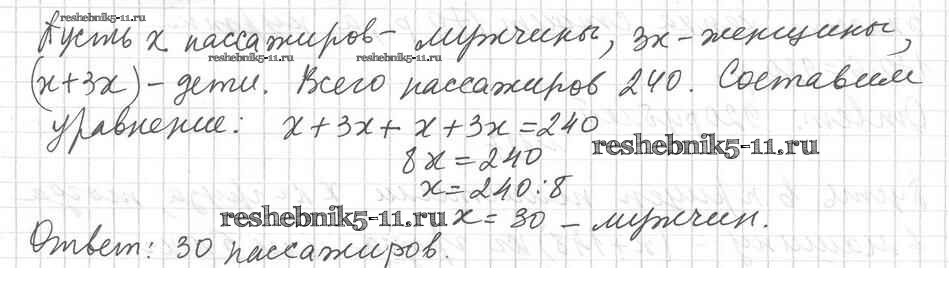 reshebnik5-11.ru
Пусть x пассажиров - мужчины, 3x - женщины,
reshebnik5-11.ru reshebnik5-11.ru
(x+3x) - дети. Всего пассажиров 240. Составим
уравнение: x+3x+x+3x=240
reshebnik5-11.ru
8x=240
x=240:8
reshebnik5-11.ru x=30 - мужчин.
Ответ: 30 пассажиров.